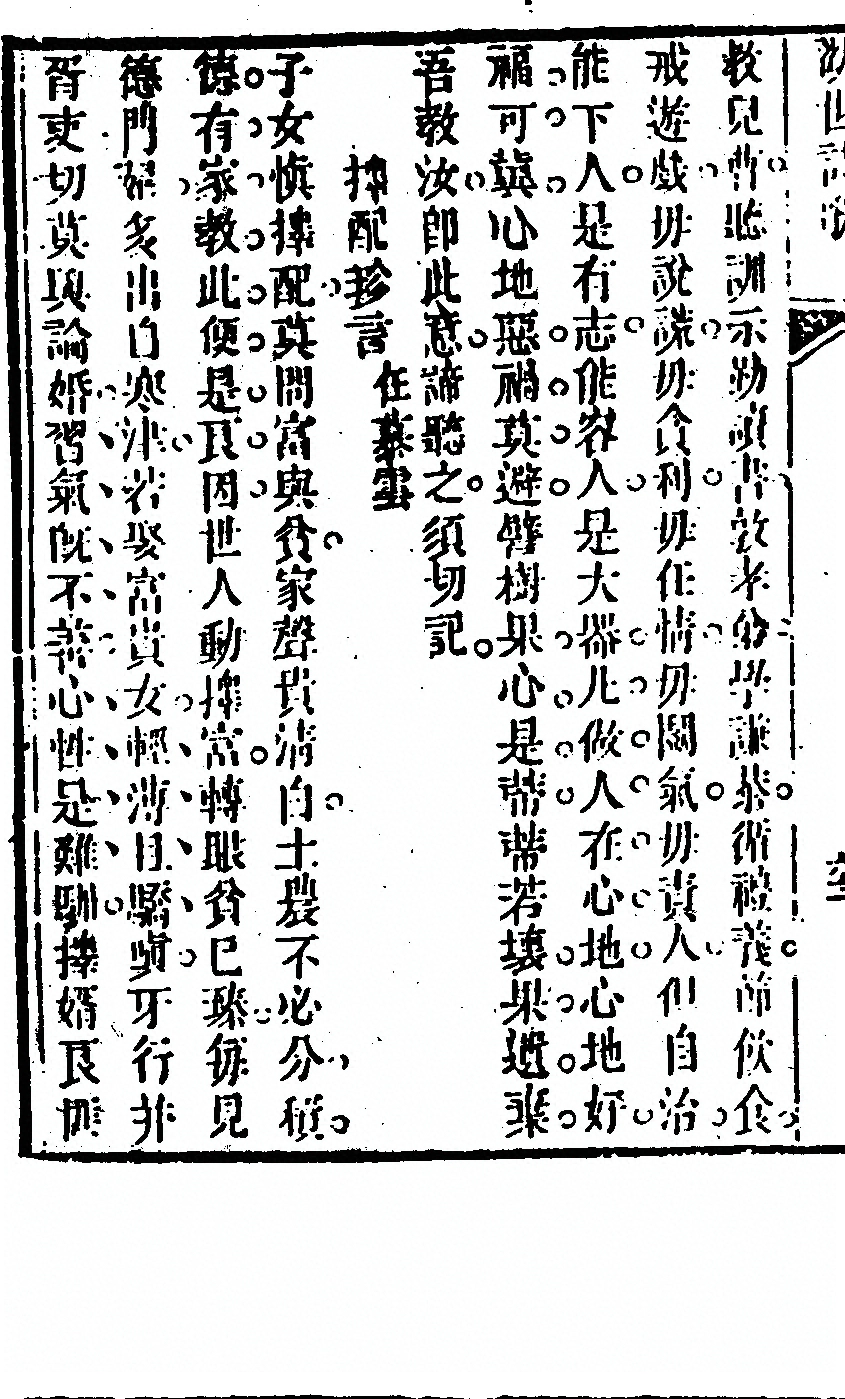 教兒曹聽訓示勤讀書敦孝弟學謙恭循禮義節飲食
戒遊戲毋說謊毋貪利毋任情毋鬬氣毋責人但自治
能下人是有志能容人是大器凡做人在心地心地好
福可冀心地惡禍莫避譬樹果心是蒂蒂若壞果遺棄
吾教汝卽此意諦聽之須切記
擇配珍言 任慕雲
子女愼擇配莫問富與貧家聲貴淸白士農不必分積
德有家敎此便是良因世人動擇富轉眼貧已臻每見
德門 多出自寒津若娶富貴女輕薄且驕嗔牙行非
胥吏切莫與論婚習氣旣不善心性是難馴擇婿良